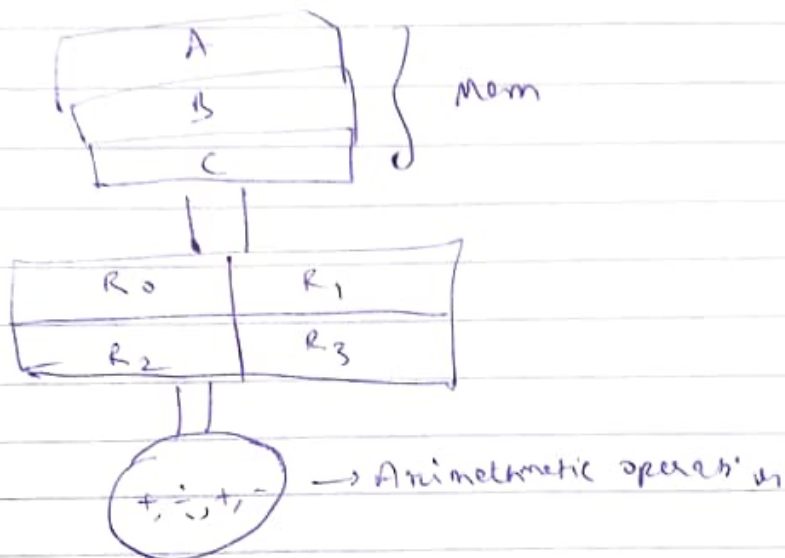 A
Mem
B
C
R0 R1
R2 R3
+, ÷, +, - → Arimethmetic operation